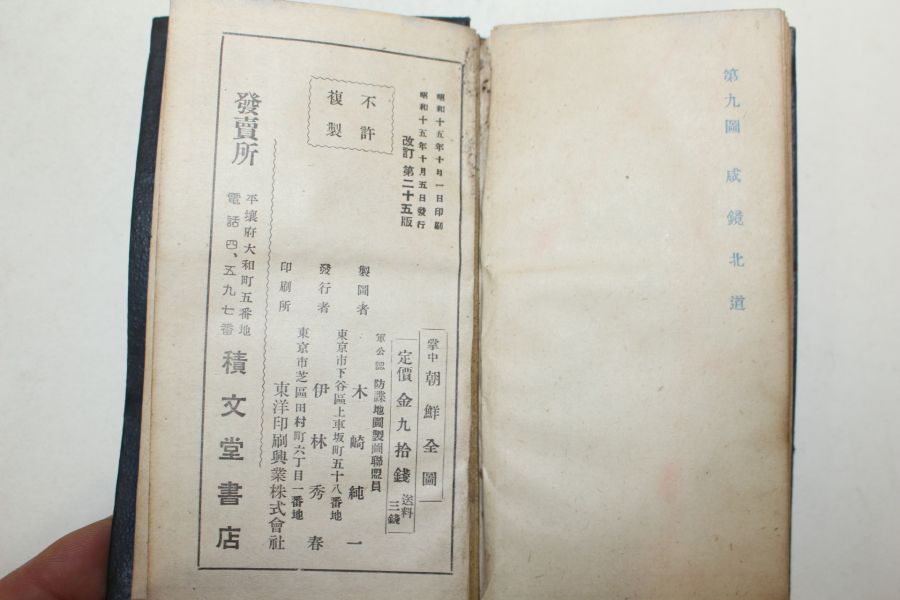 第九圖 咸鏡北道
昭和十五年十月一日印刷
昭和十五年十月五日發行
改訂 第二十五版
不許
複製
掌中 朝鮮全圖
定價 金九拾錢 送料三錢
軍公認 防諜地圖製圖聯盟員
製圖者 木崎純一
東京市下谷區上車坂町五十八番地
發行者 伊林秀春
東京市芝區田村町六丁目一番地
印刷所 東洋印刷興業株式會社
平壤府大和町五番地
電話 四、五九七番
發賣所 積文堂書店